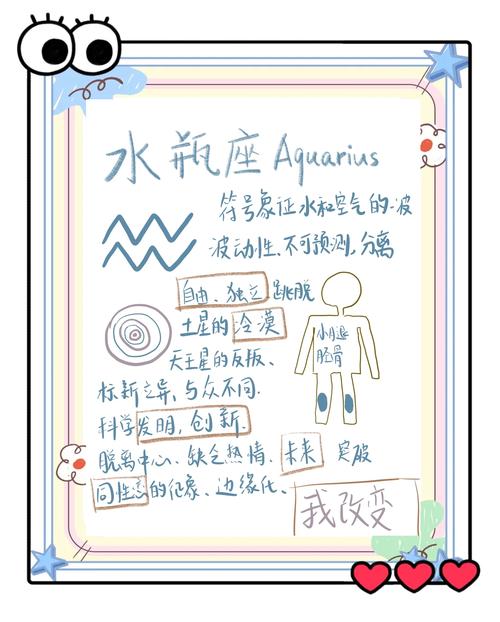 水瓶座 Aquarius
符号象征水和空气的波
波动性、不可预测,分离
自由、独立 跳脱
土星的 冷漠
小腿
胫骨
天王星的反叛、
标新立异,与众不同.
科学发明,创新.
脱离中心、缺乏热情、未来 突破
同性恋的征象、边缘化、
我改变